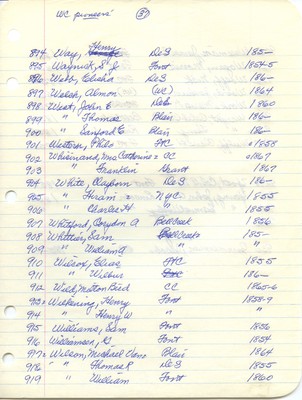 WC pioneers' 37
894 Way, Henry DeS 185-
895 Waynick, S J Font 1854-5
896 Webb, Elisha DeS 186-
897 Welsh, Almon (WC) 1864
898 West, John E DeS 1860
899 " Thomas Blair 186-
900 " Sanford C Blair 186-
901 Philo FtC a1858
902 Whisinand, Mrs Catherine CC a1867
903 " Franklin Grant 1867
904 White, Clayborn DeS 186-
905 " Hiram NYC 1855
906 " Charles H " 1855
907 Whitford, Corydon A BellCreek 1856
908 Whittier, Sam BellCreek 185-
909 " William A " "
910 Wilcox, Elias FtC 1855
911 " Wilbur 186-
912 Wild, Morton Bird CC 1865-6
913 Wilkening, Henry Font 1858-9
914 " Henry W " "
915 Williams, Sam Font 1856
916 Williamson, G Font 1854
917 Wilson, Michael Blair 1864
918 " " Thomas R DeS 1855
919 " William Font 1860